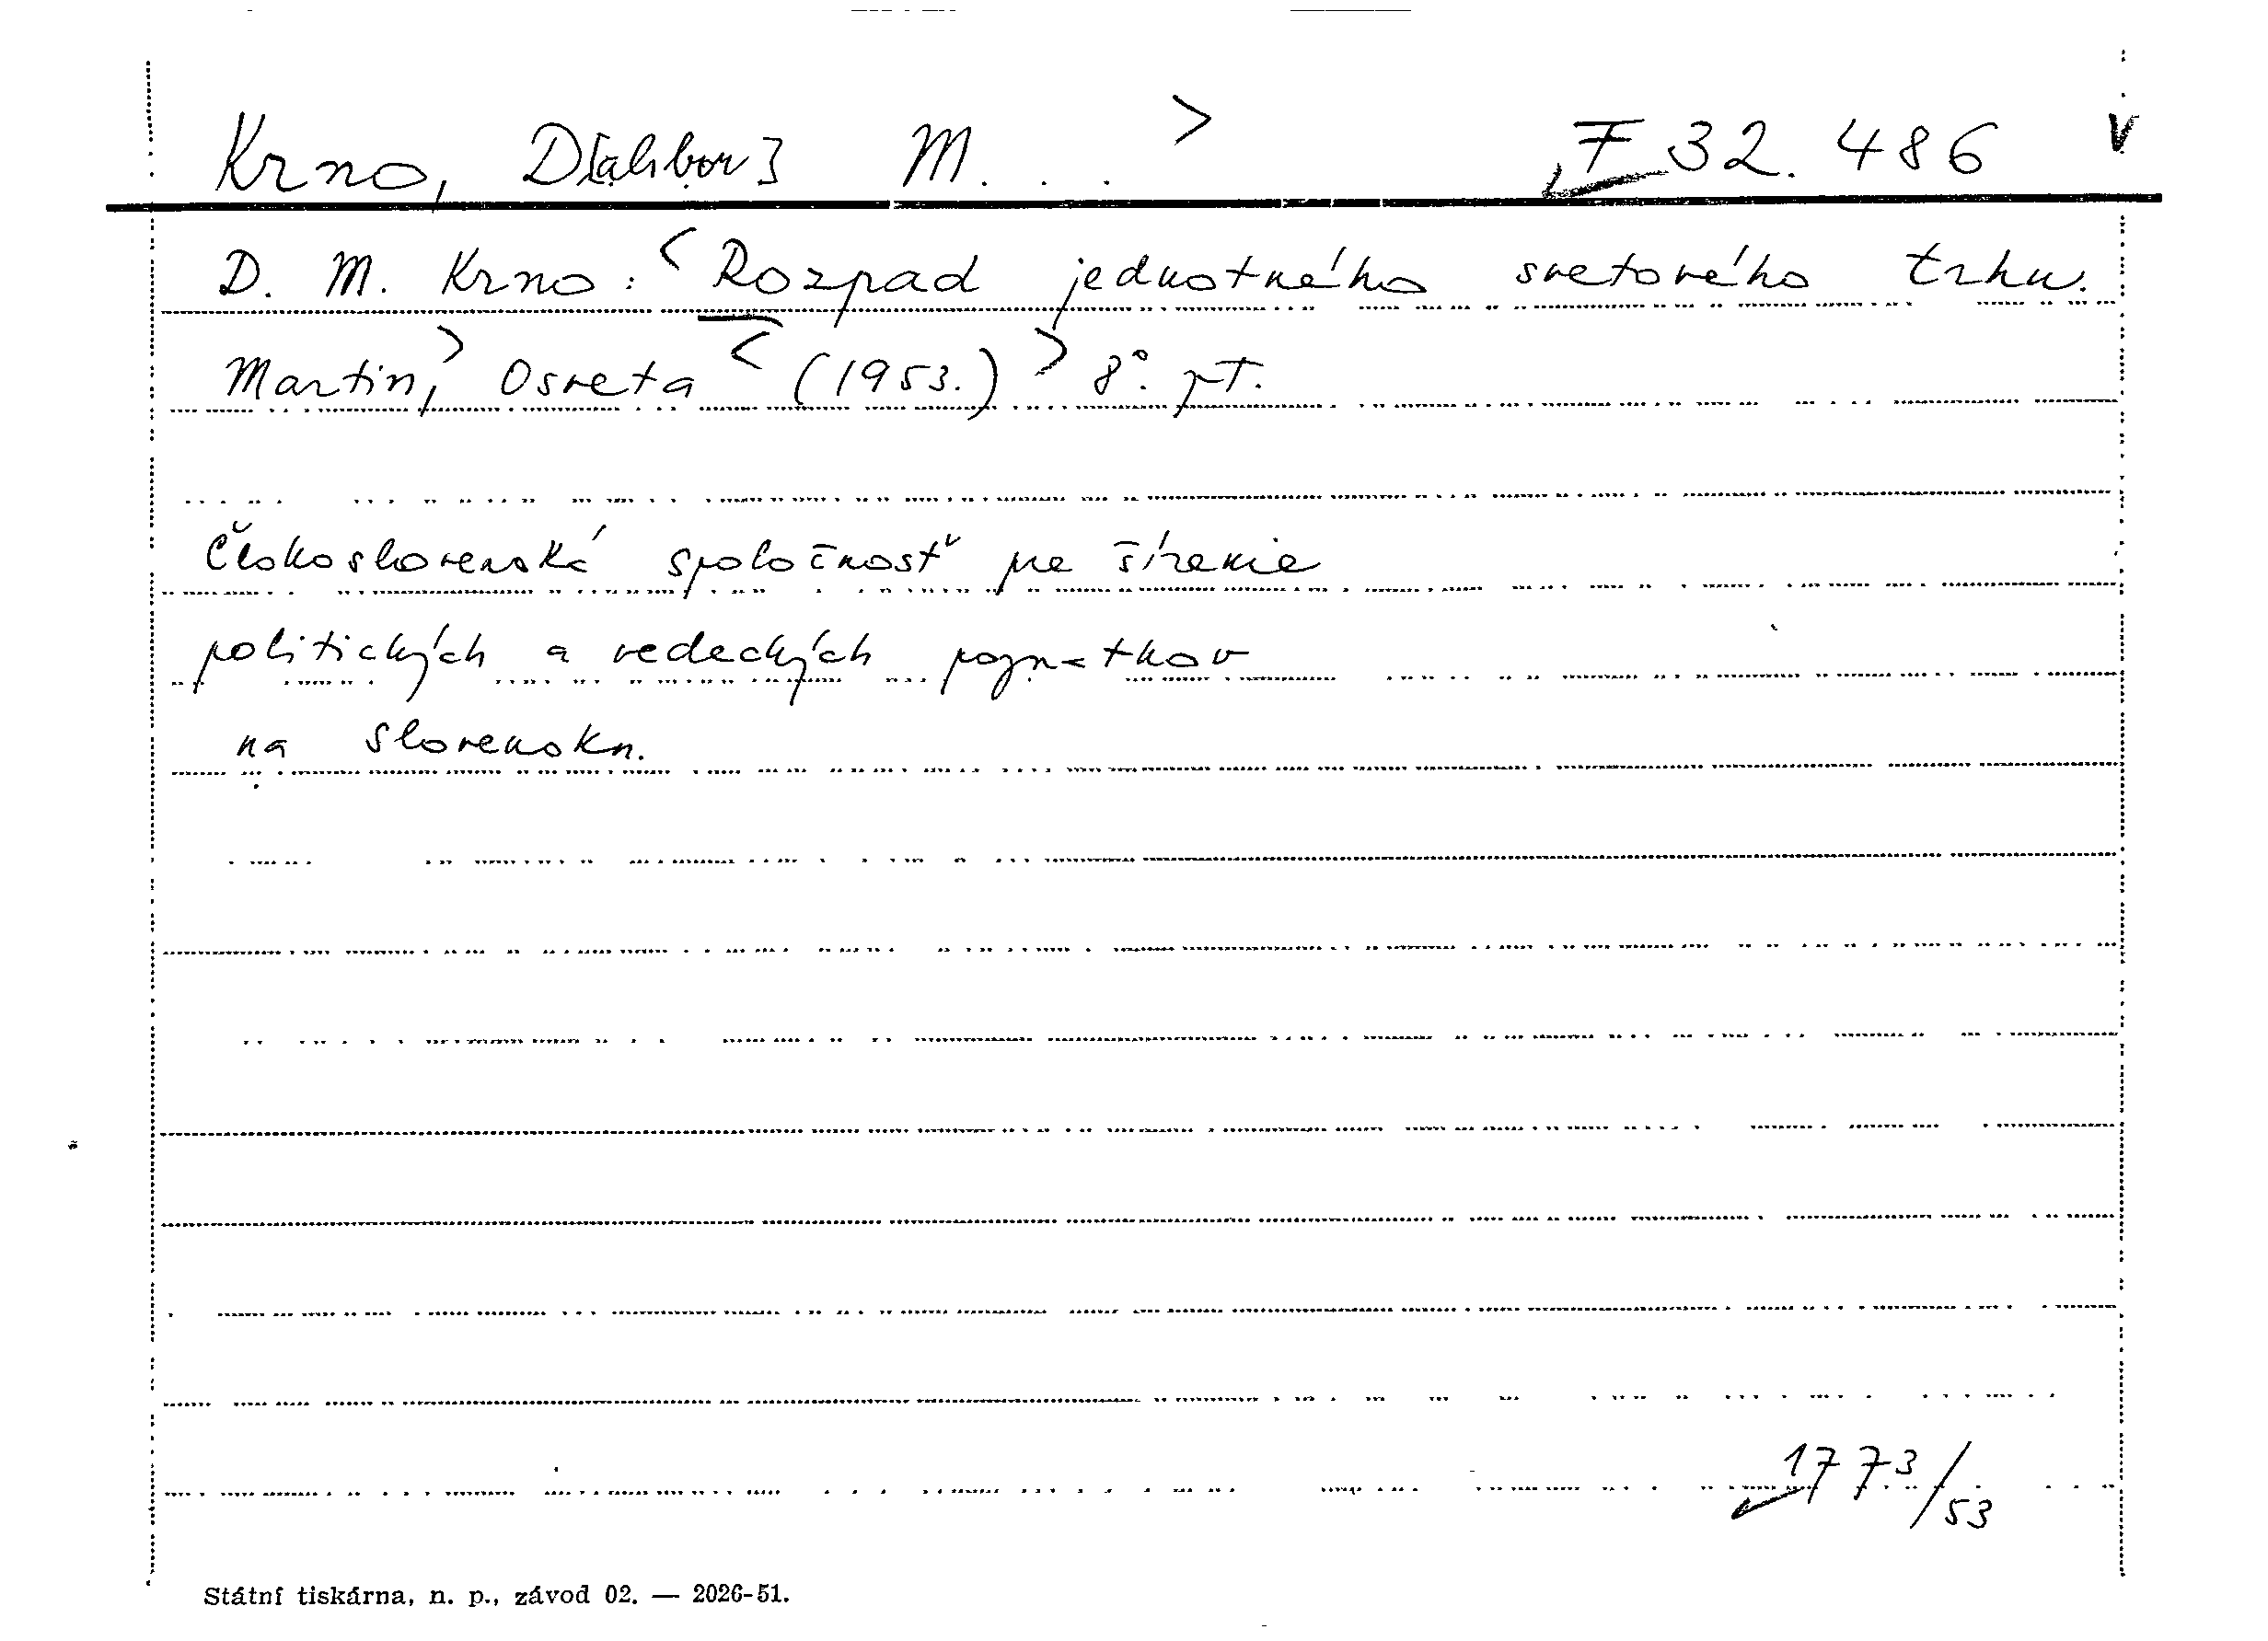 Krno, D[alibor] M. . . > F 32.486 v
D. M. Krno: <Rozpad jednotného svetového trhu.
Martin,> Osveta <(1953.)> 8°. pT.
Československá spoločnosť pre šírenie
politických a vedeckých poznatkov
na Slovensku.
1773/53
Státní tiskárna, n. p., závod 02. — 2026-51.